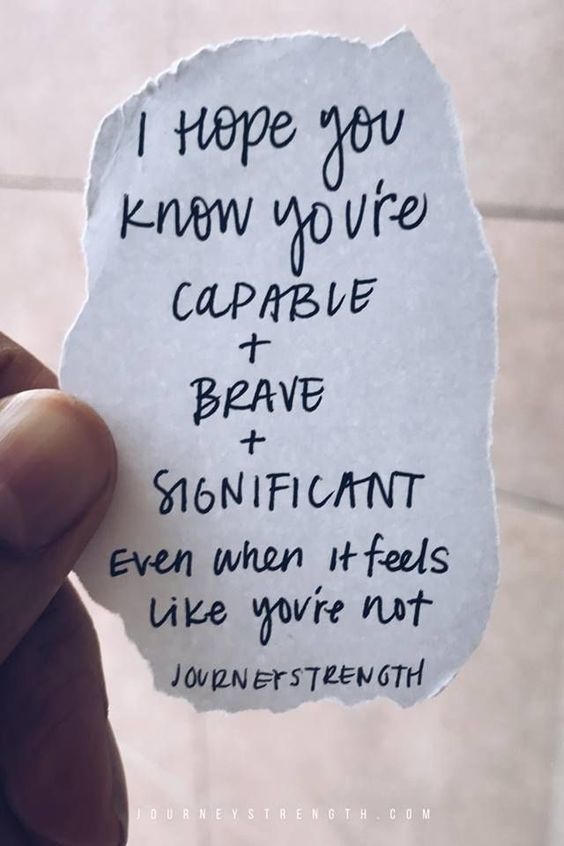 I HOPE you
KNOW you're
CAPABLE
+
BRAVE
+
SIGNIFICANT
Even when it feels
like you're not
JOURNEYSTRENGTH
JOURNEYSTRENGTH.COM